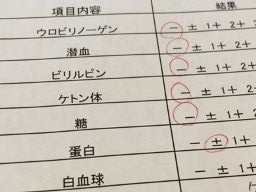 項目内容 結果
ウロビリノーゲン － ± 1+ 2+
潜血 － ± 1+ 2+
ビリルビン － ± 1+ 2+
ケトン体 － ± 1+ 2+
糖 － ± 1+ 2
蛋白 － ± 1+ 2
白血球 － ± 1+